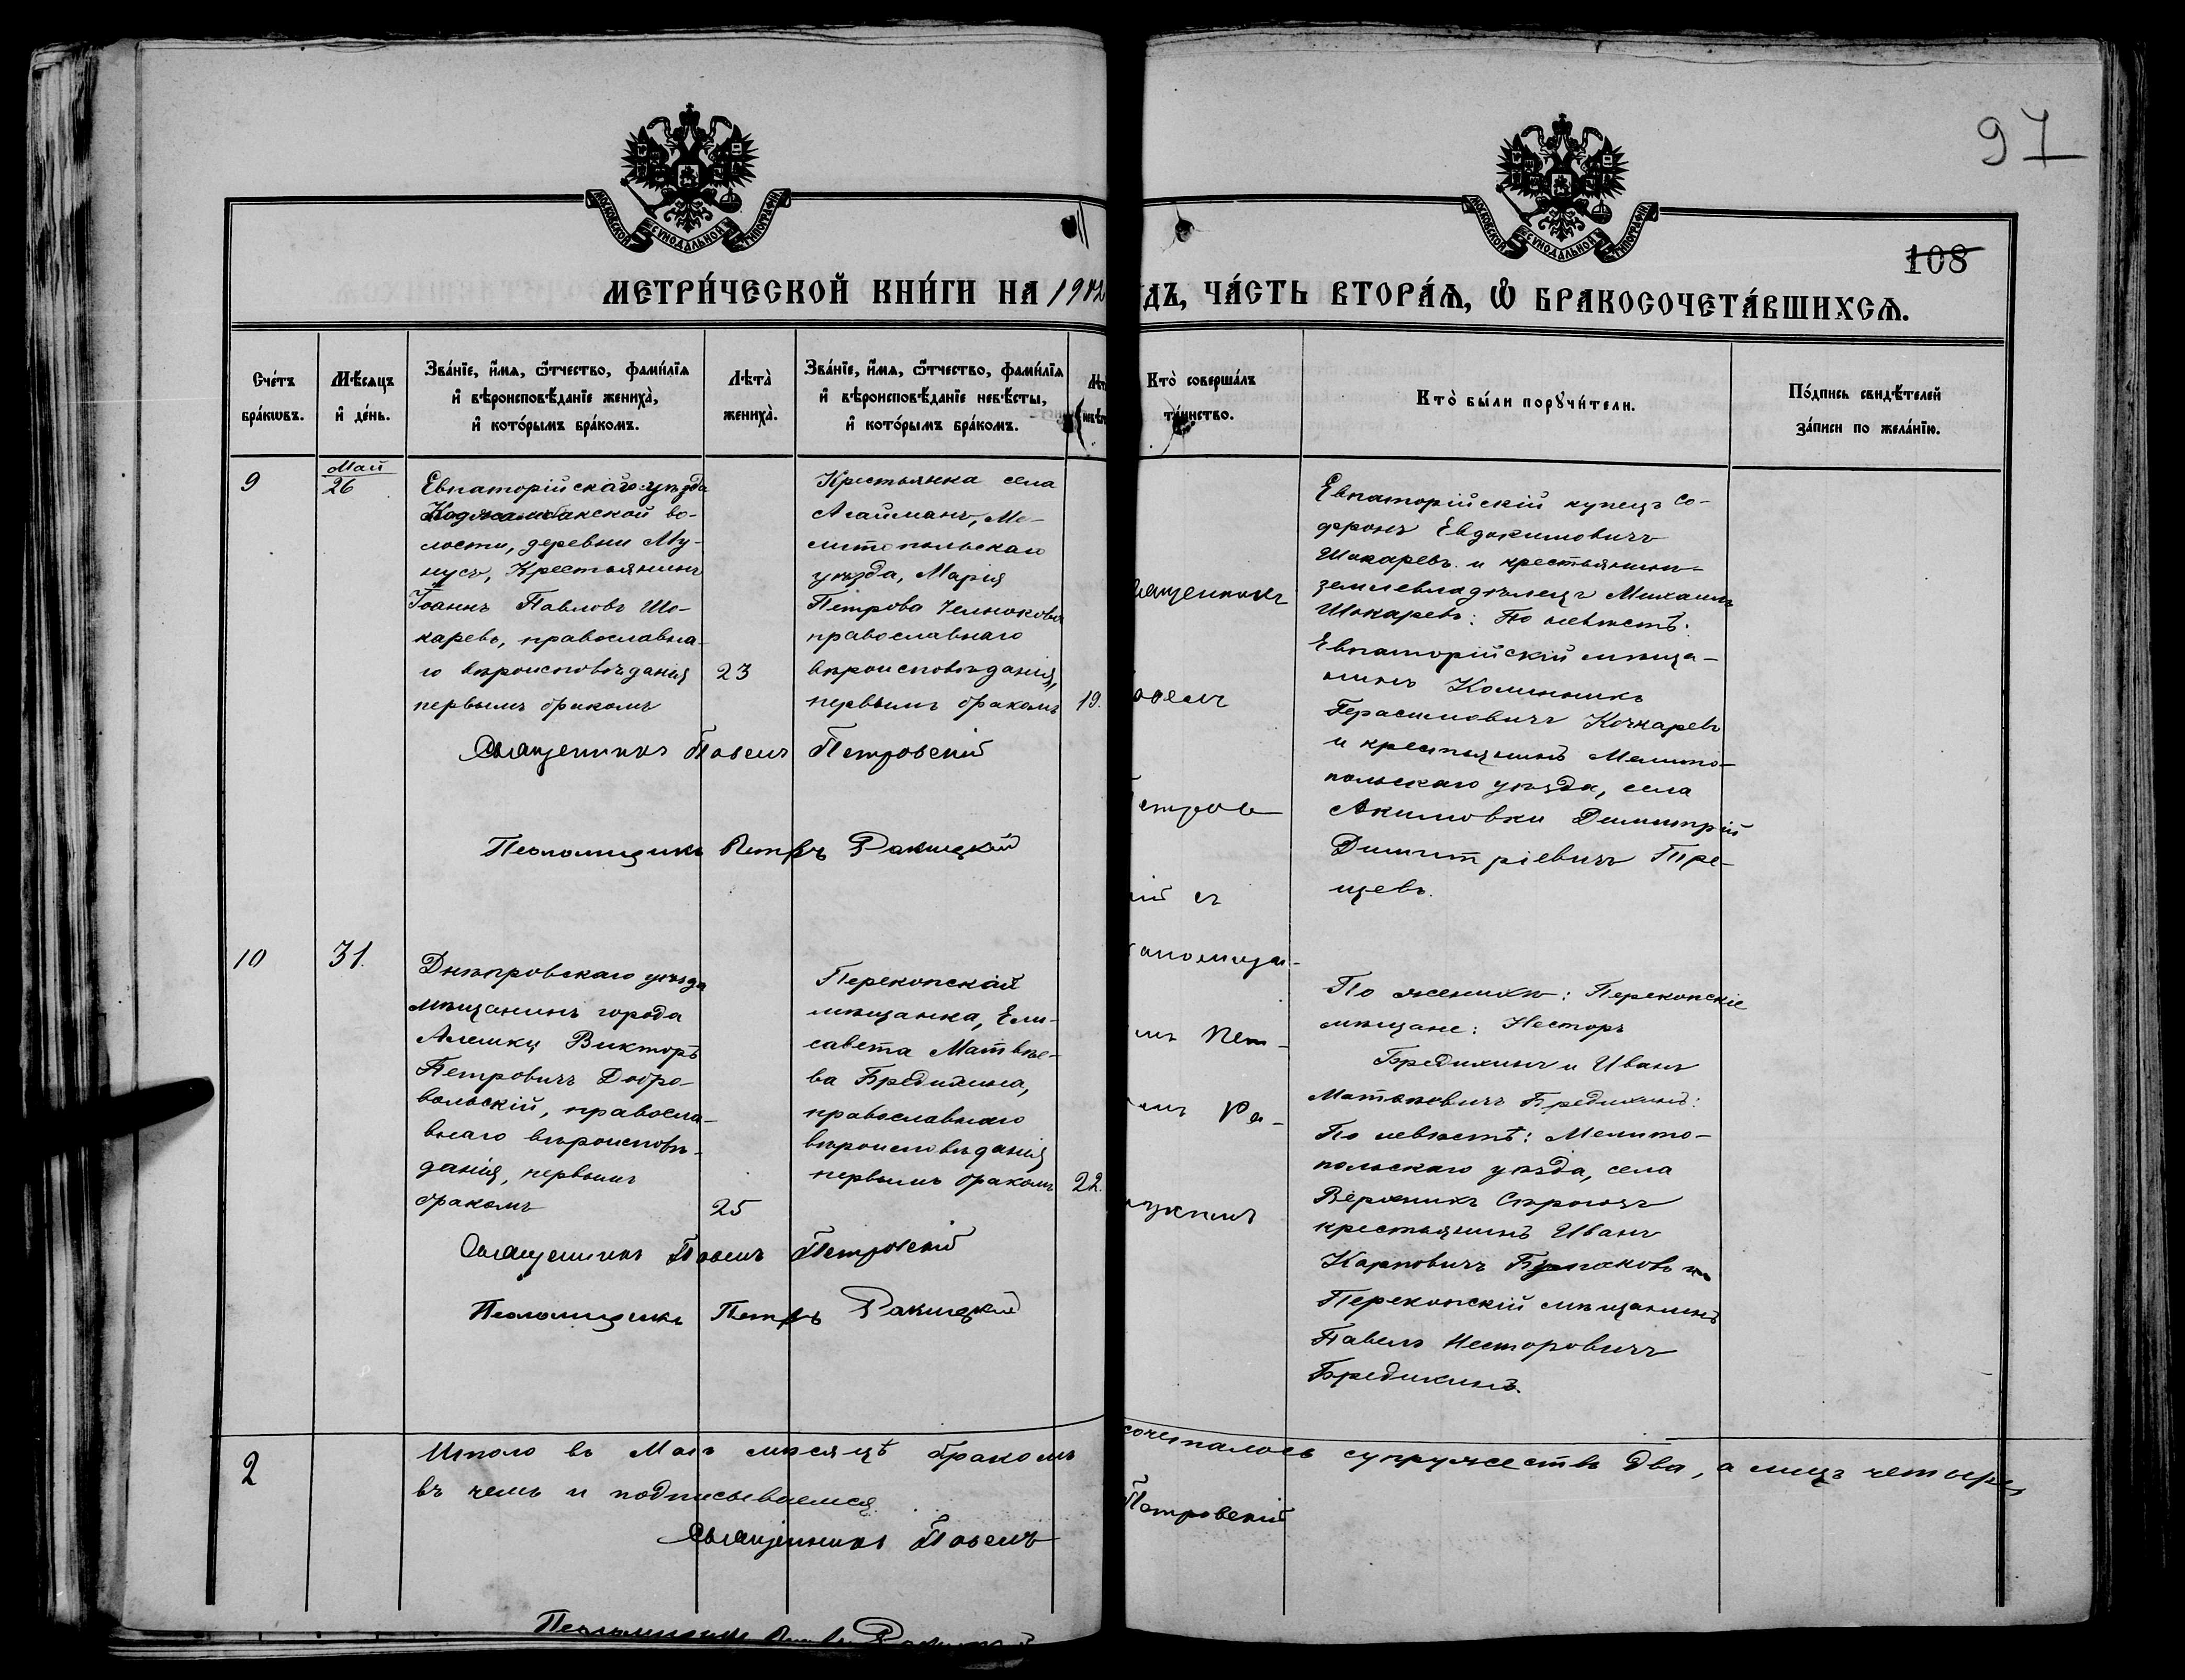 97
108
МОСКОВСКОЙ СѴНОДАЛЬНОЙ ТИПОГРАФІИ
МОСКОВСКОЙ СѴНОДАЛЬНОЙ ТИПОГРАФІИ
МЕТРИ́ЧЕСКОЙ КНИ́ГИ НА 190
ДЪ, ЧА́СТЬ ВТОРА́Ѧ, Ѽ БРАКОСОЧЕТА́ВШИХСѦ.
Сче́тъ бра́кѡвъ.
Мѣ́сяцъ и҆ де́нь.
Зва́нїе, и҆́мѧ, ѻ҆́тчество, фами́лїѧ
и҆ вѣроисповѣ́данїе жениха̀,
и҆ кото́рымъ бра́комъ.
Лѣта̀ жениха̀.
Зва́нїе, и҆́мѧ, ѻ҆́тчество, фами́лїѧ
и҆ вѣроисповѣ́данїе невѣ́сты,
и҆ кото́рымъ бра́комъ.
Кто̀ соверша́лъ
та́инство.
Кто̀ бы́ли порꙋчи́тели.
По́дпись свидѣ́телей
за́писи по жела́нїю.
9
Май
26
Евпаторійскаго уѣзда
во-
лости, деревни Му-
нусъ, Крестьянинъ
Іоаннъ Павловъ Шо-
каревъ, православна-
го вѣроисповѣданія
первымъ бракомъ
23
Крестьянка села
Агайманъ, Ме-
литопольскаго
уѣзда, Марія
Петрова Челнокова
православнаго
вѣроисповѣданія,
первымъ бракомъ
19.
Священникъ Павелъ Петровскій
Псаломщикъ Петръ Ракицкій
Евпаторійскій купецъ Со-
фронъ Евдокимовичъ
Шокаревъ и крестьянинъ-
землевладѣлецъ Михаилъ
Шокаревъ: По невѣстѣ:
Евпаторійскій мѣща-
нинъ Калинникъ
Герасимовичъ Кочкаревъ
и крестьянинъ Мелито-
польскаго уѣзда, села
Акимовки Димитрій
Димитріевичъ Пре-
щевъ.
10
31.
Днѣпровскаго уѣзда
мѣщанинъ города
Алешки Викторъ
Петровичъ Добро-
вольскій, правосла-
внаго вѣроисповѣ-
данія, первымъ
бракомъ
25
Перекопская
мѣщанка, Ели-
савета Матвѣе-
ва Бредихина,
православнаго
вѣроисповѣданія
первымъ бракомъ
22.
Священникъ Павелъ Петровскій
Псаломщикъ Петръ Ракицкій
По женихѣ: Перекопскіе
мѣщане: Несторъ
Бредихинъ и Иванъ
Матвѣевичъ Бредихинъ:
По невѣстѣ: Мелито-
польскаго уѣзда, села
крестьянинъ Иванъ
Карповичъ и
Перекопскій мѣщанинъ
Павелъ Несторовичъ
Бредихинъ.
ященникъ
авелъ
етров-
ій съ
аломщи-
мъ Пет-
мъ Ра-
ицкимъ
2
Итого въ Маѣ мѣсяцѣ бракомъ
сочеталось супружествъ два, а лицъ четыре,
въ чемъ и подписываемся
Священникъ Павелъ
Петровскій
Псаломщикъ Петръ Ракицкій